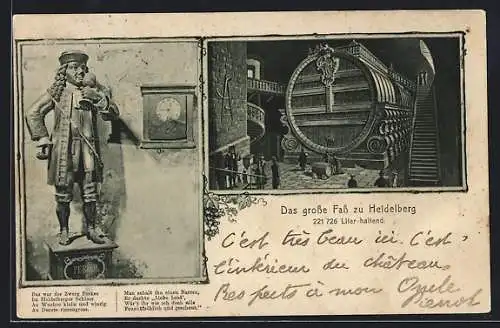 PERKEO
Das war der Zwerg Perkeo
Im Heidelberger Schloss
An Wuchse klein und winzig
An Durste riesengross.
Man schalt ihn einen Narren,
Er dachte: „Liebe Leut',
Wär't ihr wie ich doch alle
Feucht-fröhlich und gescheut."
Das große Faß zu Heidelberg
221 726 Liter haltend.
C'est très beau ici. C'est
l'intérieur du château,
Respects à mon Oncle